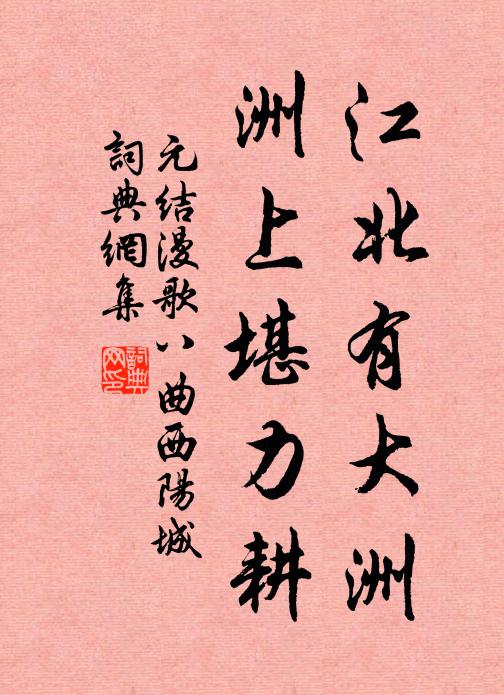 江北有大洲
洲上堪力耕
元结漫歌八曲西陽城
詞典網集
詞典網印